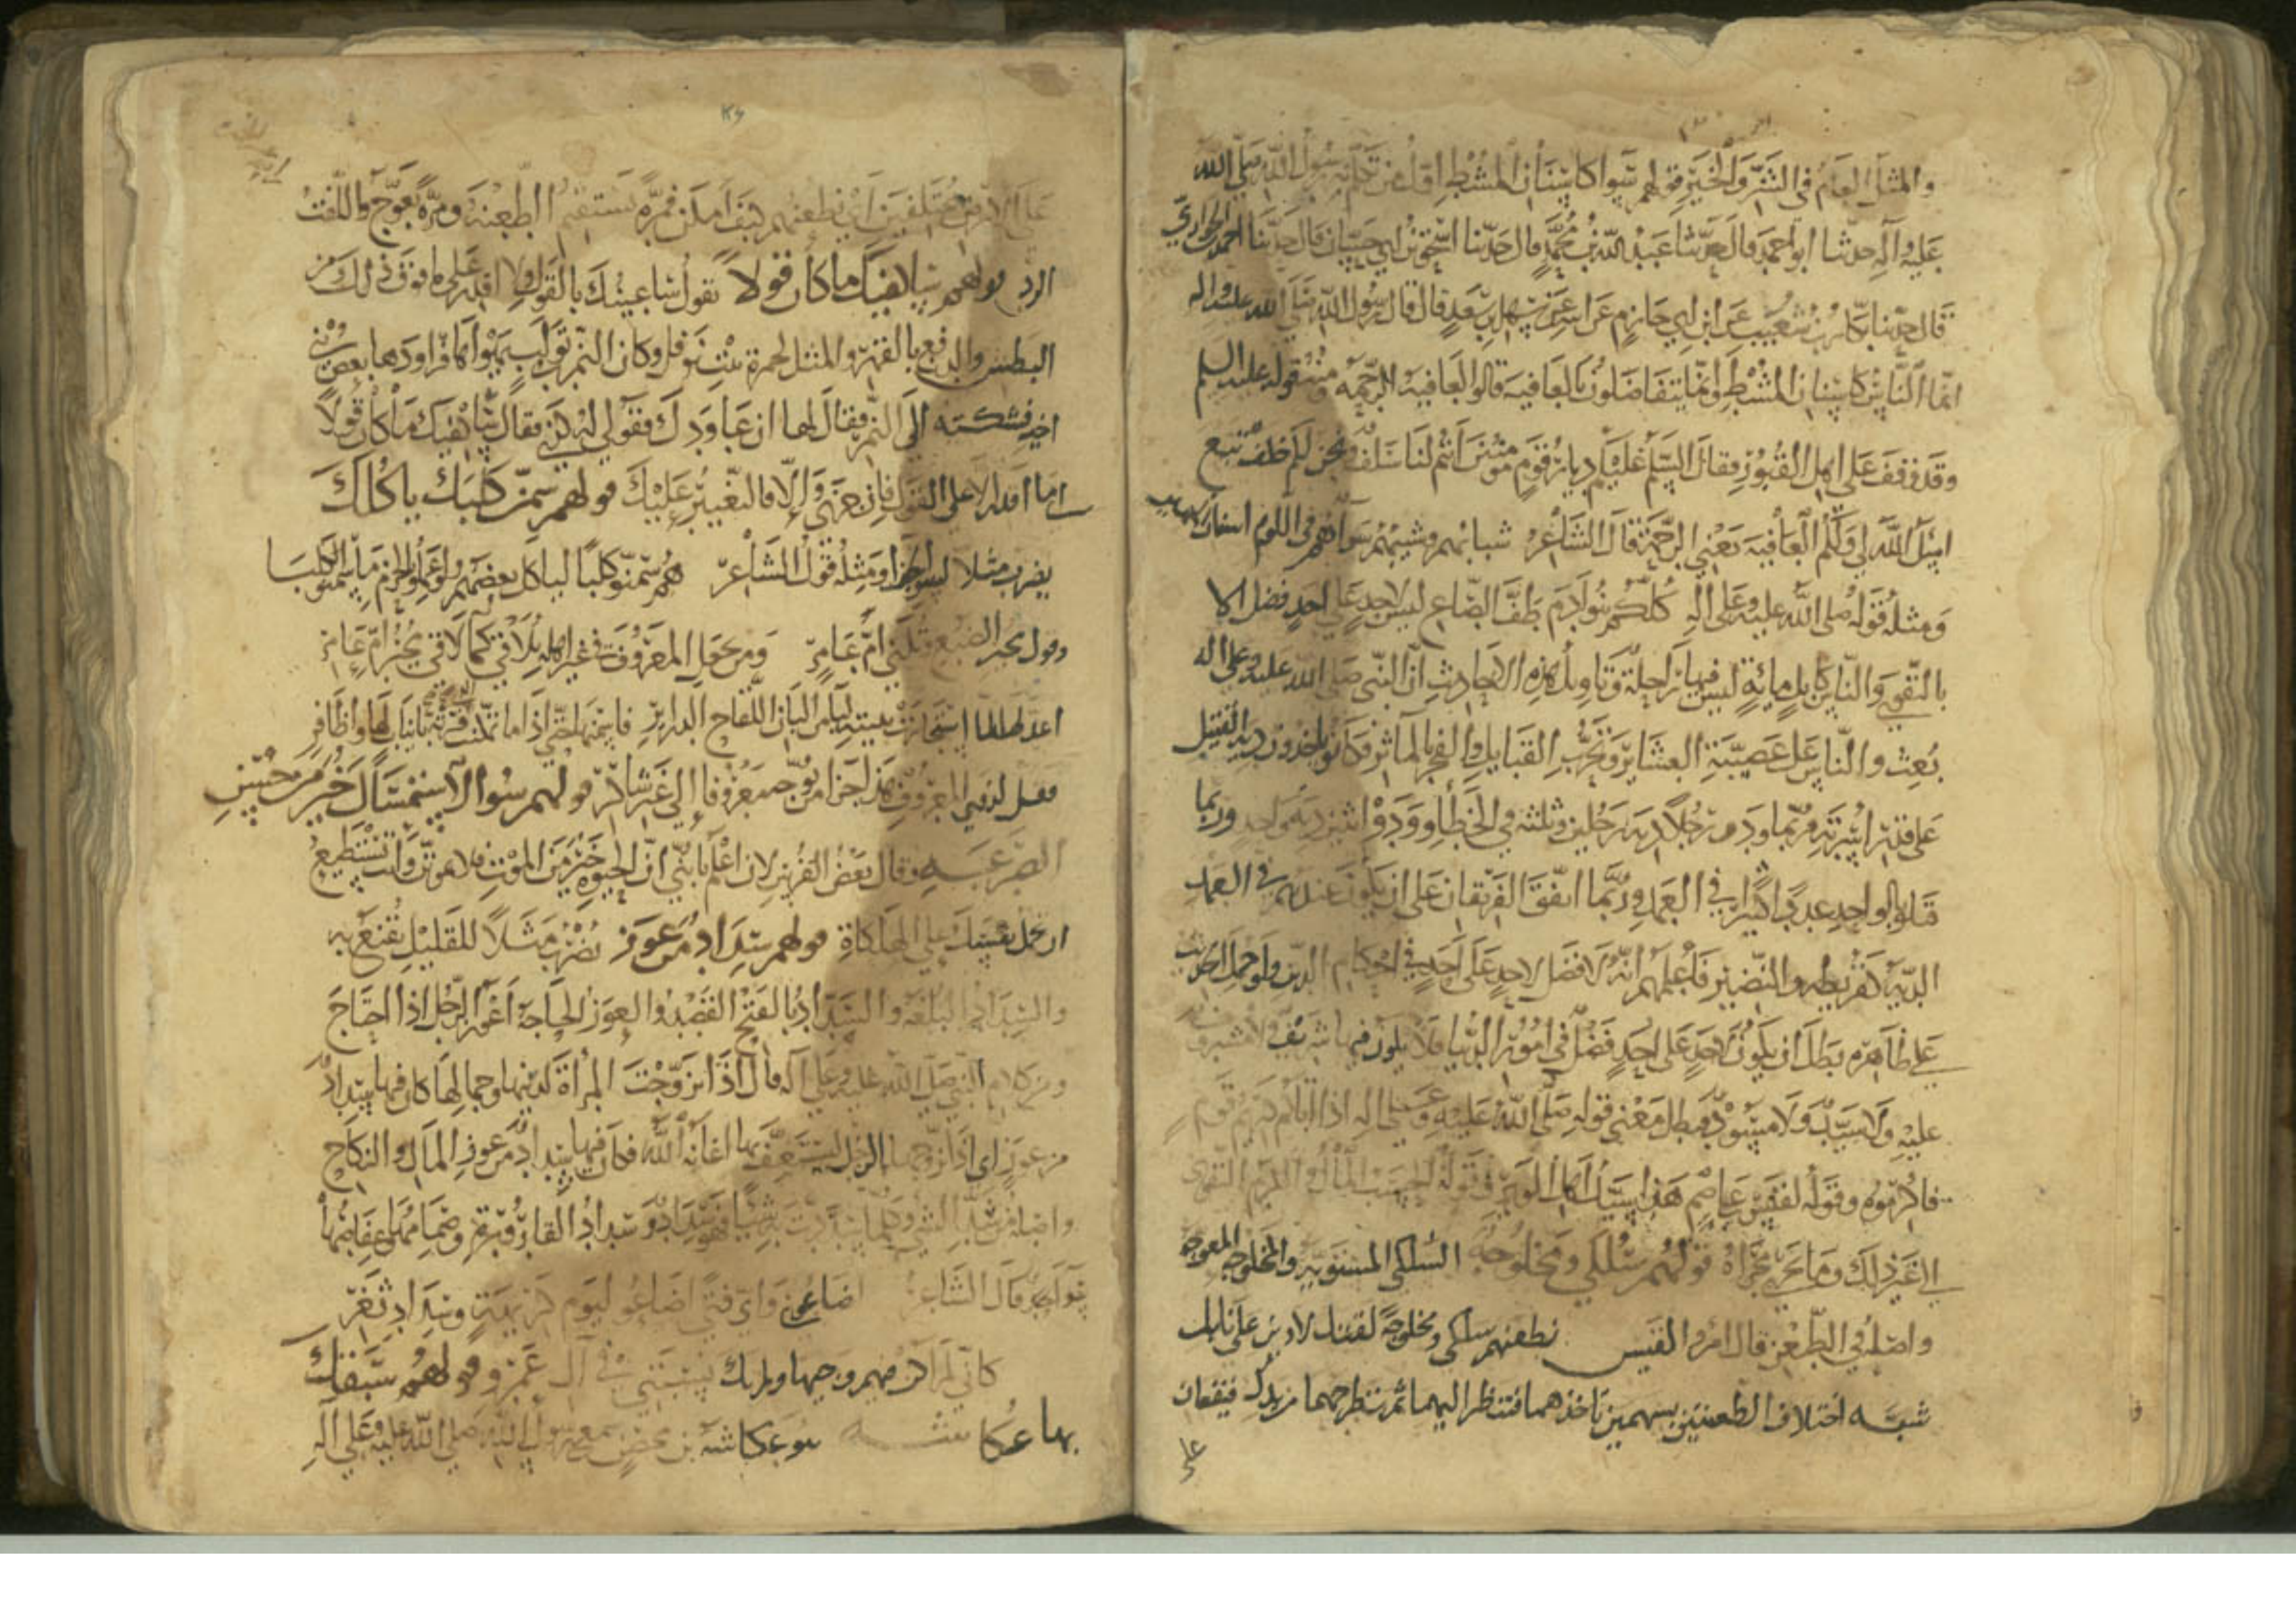 والمثل العام في الشر والخير قولهم سواء كاسنان المشط اول من تكلم به رسول الله صلى الله
عليه وآله حدثنا ابو احمد قال حدثنا عبد الله بن محمد قال حدثنا اسحق بن ابي حسان قال حدثنا احمد الحواري
قال حدثنا بكار بن شعيب عن ابن ابي حازم عن ابيه عن سهل بن سعد قال قال رسول الله صلى الله عليه واله
انما الناس كاسنان المشط وانما يتفاضلون بالعافية قالوا العافية الرحمة ومثله قوله عليه السلم
وقد وقف على اهل القبور فقال السلم عليكم ديار قوم مؤمنين انتم لنا سلف ونحن لكم خلف تبع
اسئل الله لي ولكم العافية يعني الرحمة قال الشاعر شبابهم وشيبهم سواء فهم في اللوم اسنان
ومثله قوله صلى الله عليه وعلى اله كلكم بنو آدم طف الصاع ليس لاحد على احد فضل الا
بالتقوى والناس كابل مائة ليس فيها راحلة وتاويل هذه الاحاديث ان النبي صلى الله عليه وعلى اله
بعث والناس على عصبية العشاير وتحزب القبايل والفخر بالمآثر وكانوا ياخذون دية القتيل
على قدر اسرته فربما ودى رجلا دية رجلين وثلثة في الخطا وودوا اثنين دية واحد وربما
قتلوا بالواحد عددا كثيرا في العمد وربما اتفق الفريقان على ان يكون عندهم في العمد
الدية كقريظة والنضير فاعلمهم انه لا فضل لاحد على احد في احكام الدين ولو حمل الحديث
على ظاهره بطل ان يكون لاحد على احد فضل في امور الدنيا فلا يكون فيها شريف ولا مشروف
عليه ولا سيد ولا مسود فبطل معنى قوله صلى الله عليه وعلى اله اذا اتاكم كريم قوم
فاكرموه وقوله لقيس بن عاصم هذا سيد اهل الوبر وقوله الحسب المال والكرم التقوى
الى غير ذلك وما جرى مجراه قولهم سلكى ومخلوجة السلكى المستوية والمخلوجة المعوجة
واصله في الطعن قال امرؤ القيس نطعنهم سلكى ومخلوجة لفتك لامين على نابل
شبه اختلاف الطعنتين بسهمين تاخذهما فتنظر اليهما ثم تطرحهما من يدك فيقعان
على
على الارض مختلفين اي نطعنهم كيف امكن فمرة تستقيم الطعنة ومرة تعوج واللفت
الرد قولهم سيكفيك ما كان قولا تقول ساعينك بالقول ولا اقدر على ما فوق ذلك من
البطش والدفع بالقهر والمثل لحمرة بنت نوفل وكان النمر بن تولب يهواها فراودها بعض بني
اخيه فشكته الى النمر فقال لها ان عاودك فقولي له كذى فقال سيكفيك ما كان قولا
اما اقدر الا على القول فان عزني والا فالتغيير عليك قولهم سمن كلبك ياكلك
يضرب مثلا لسوء الجزا ومثله قول الشاعر هم سمنوا كلبا لياكل بعضهم ولو عملوا بالحزم ما سمنوا كلبا
وقول مجير الضبع ام عامر ومن يجعل المعروف في غير اهله يلاقي كما لاقى مجير ام عامر
اعد لها لما استجارت ببيته البان اللقاح الدراير فاسمنها حتى اذا ما تمكنت فرته بانياب لها واظافر
فقل لذوي المعروف هذا جزا من يوجه معروفا الى غير شاكر قولهم سوء الاستمساك خير من حسن
الصرعة وقال بعض الفرس لابن اعلم يا بني ان الحيوة خير من الموت فلا تموتن وانت تستطيع
ان تحمل نفسك على الهلكاة قولهم سداد من عوز يضرب مثلا للقليل تقنع به
والسداد البلغة والسداد بالفتح القصد والعوز الحاجة اعوز الرجل اذا احتاج
ومن كلام النبي صلى الله عليه وعلى آله قال اذا تزوجت المرأة لدينها وجمالها كان فيها سداد
من عوز اي اذا تزوجها الرجل ليستعفف بها اغناه الله فكان فيها سداد من عوز المال والنكاح
واصله من سد الشي وكلما سددت به شيا فهو سداد وسداد القارورة وصمامها عفاصها
قال الشاعر اضاعوني واي فتى اضاعوا ليوم كريهة وسداد ثغر
كاني لم اكن فيهم وجيها ولم تك نسبتي في آل عمرو قولهم سبقك
بها عكاشه هو عكاشة بن محصن سمع رسول الله صلى الله عليه وعلى آله